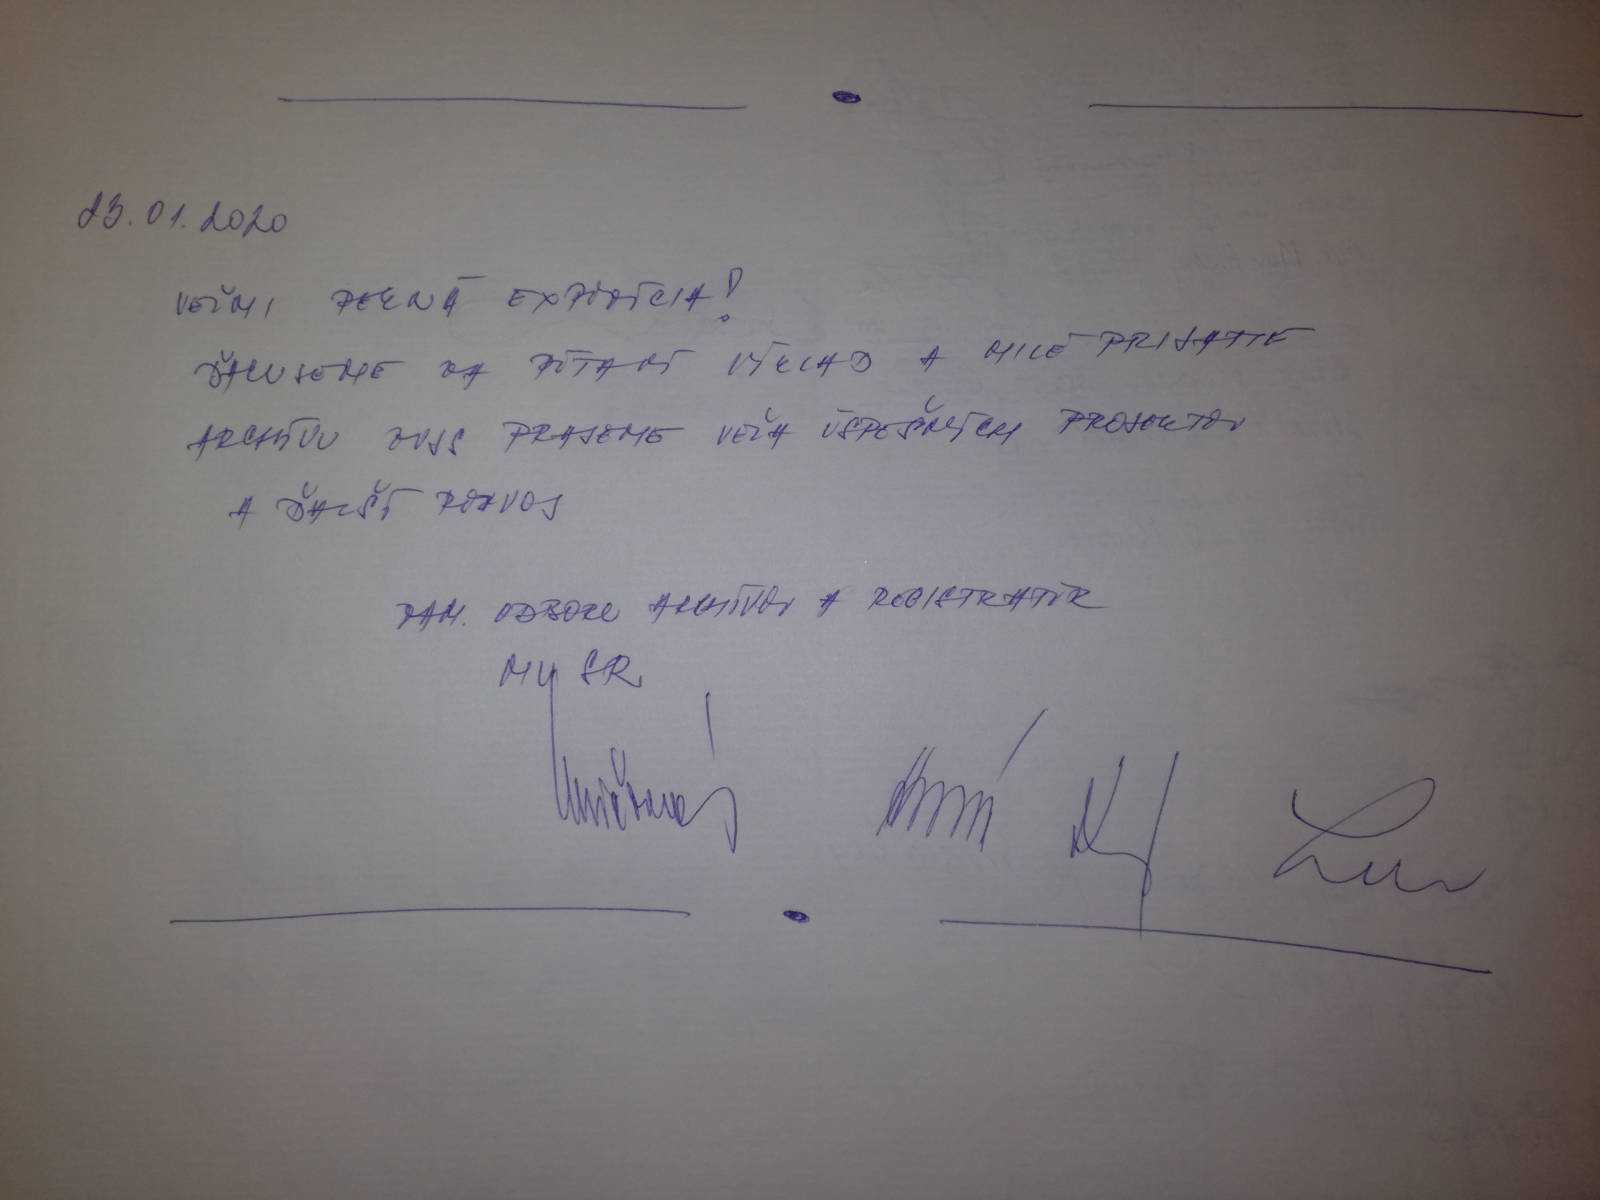 23.01.2020
VEĽMI PEKNÁ EXPOZÍCIA!
ĎAKUJEME ZA PÚTAVÝ VÝKLAD A MILÉ PRIJATIE
ARCHÍVU PRAJEME VEĽA ÚSPEŠNÝCH PROJEKTOV
A ĎALŠÍ ROZVOJ
ZAM. ODBORU ARCHÍVOV A REGISTRATÚR
MV SR